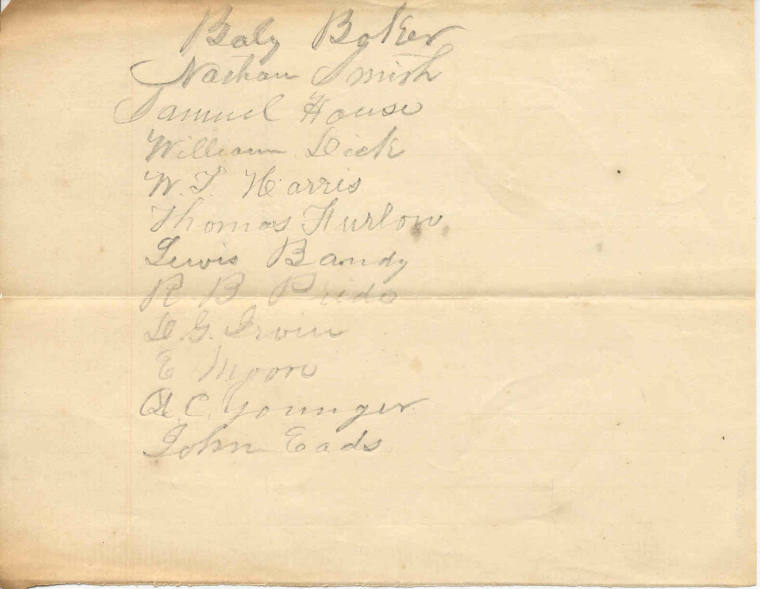 Baly Baker
Nathan Smith
Samuel House
William Dick
W. T. Harris
Thomas Furlow
Lewis Bandy
R B Pride
D. G. Irvin
E Moon
A. C. Younger
John Eads